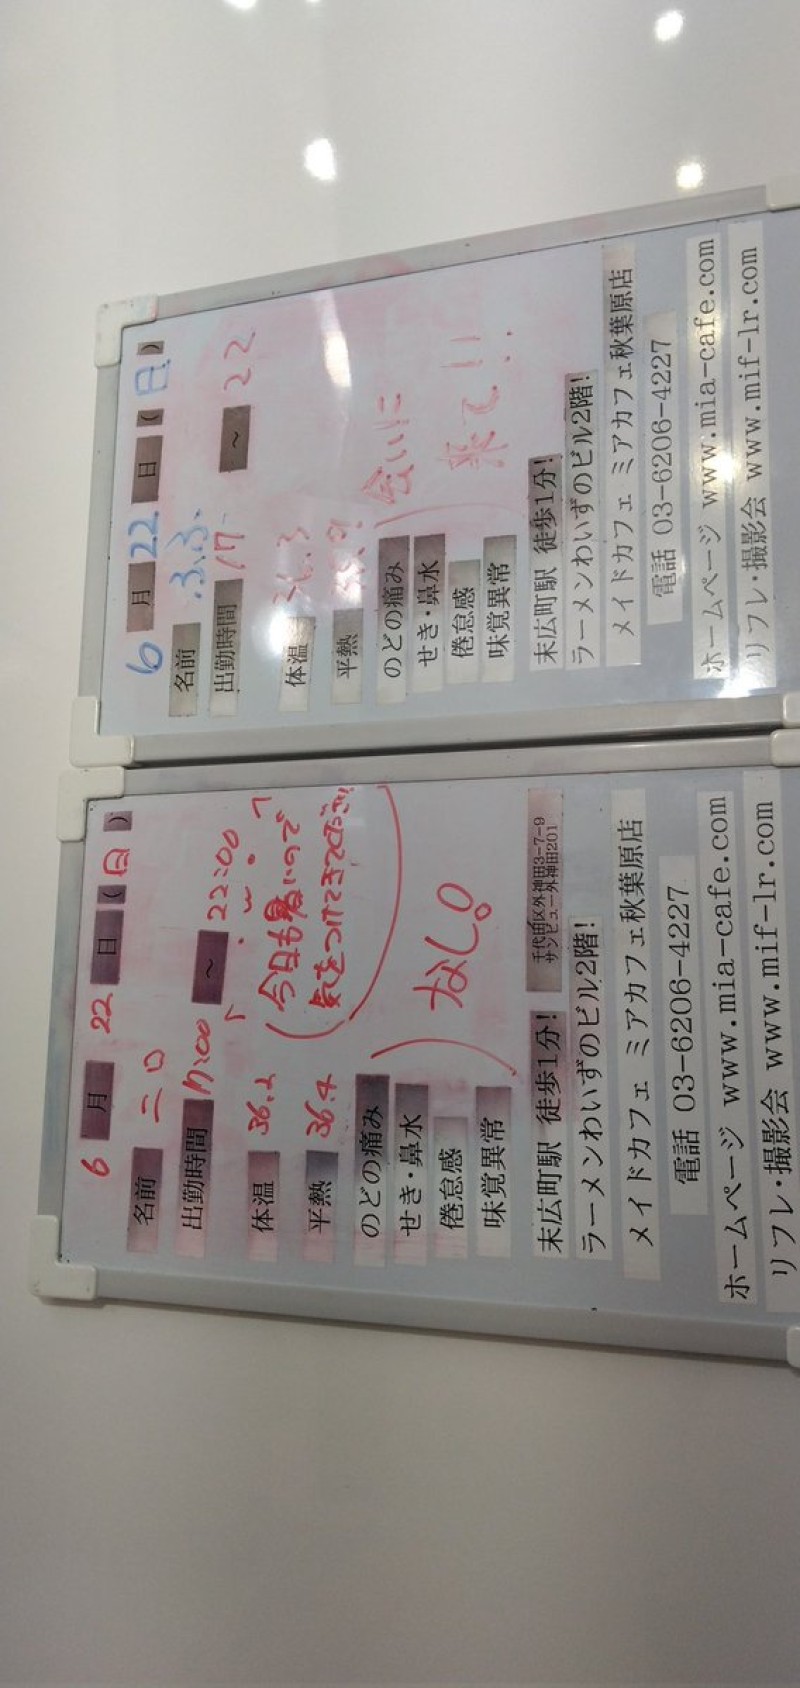 6月22日(日)
名前 ニロ
出勤時間 17:00～22:00
体温 36.2
平熱 36.4
(今日も暑いので
気をつけてきて
のどの痛み
せき・鼻水
倦怠感
味覚異常
なし。
末広町駅 徒歩1分!
千代田区外神田3-7-9
サンビュー外神田201
ラーメンわいずのビル2階!
メイドカフェ ミアカフェ秋葉原店
電話 03-6206-4227
ホームページ www.mia-cafe.com
リフレ・撮影会 www.mif-lr.com
6月22日(日)
名前 ふぶ
出勤時間 17～22
体温 36.3
平熱
のどの痛み
せき・鼻水
倦怠感
味覚異常
会いに
来て!!
末広町駅 徒歩1分!
ラーメンわいずのビル2階!
メイドカフェ ミアカフェ秋葉原店
電話 03-6206-4227
ホームページ www.mia-cafe.com
リフレ・撮影会 www.mif-lr.com